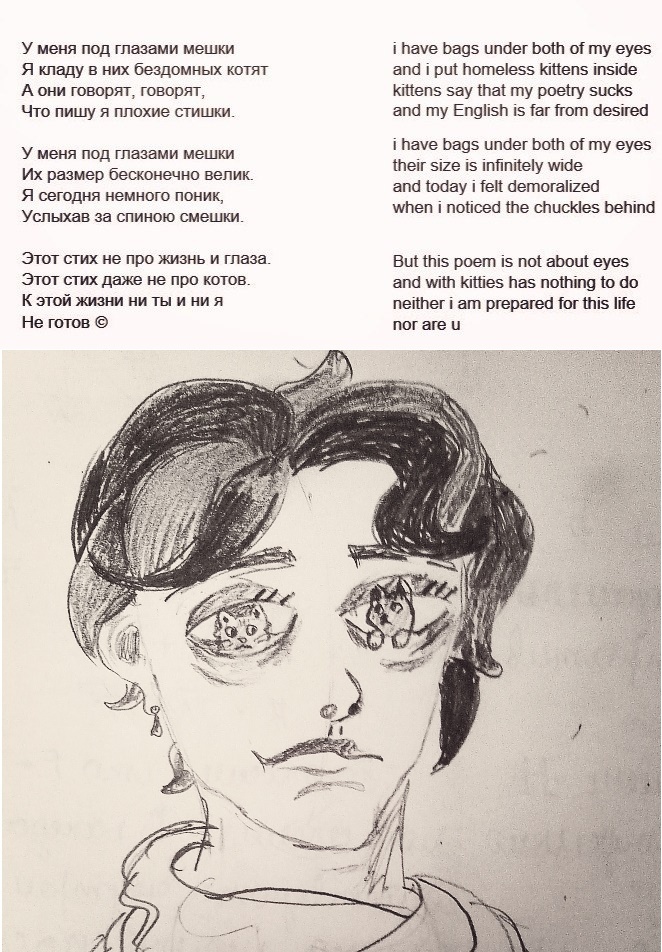 У меня под глазами мешки
Я кладу в них бездомных котят
А они говорят, говорят,
Что пишу я плохие стишки.
У меня под глазами мешки
Их размер бесконечно велик.
Я сегодня немного поник,
Услыхав за спиною смешки.
Этот стих не про жизнь и глаза.
Этот стих даже не про котов.
К этой жизни ни ты и ни я
Не готов ©
i have bags under both of my eyes
and i put homeless kittens inside
kittens say that my poetry sucks
and my English is far from desired
i have bags under both of my eyes
their size is infinitely wide
and today i felt demoralized
when i noticed the chuckles behind
But this poem is not about eyes
and with kitties has nothing to do
neither i am prepared for this life
nor are u